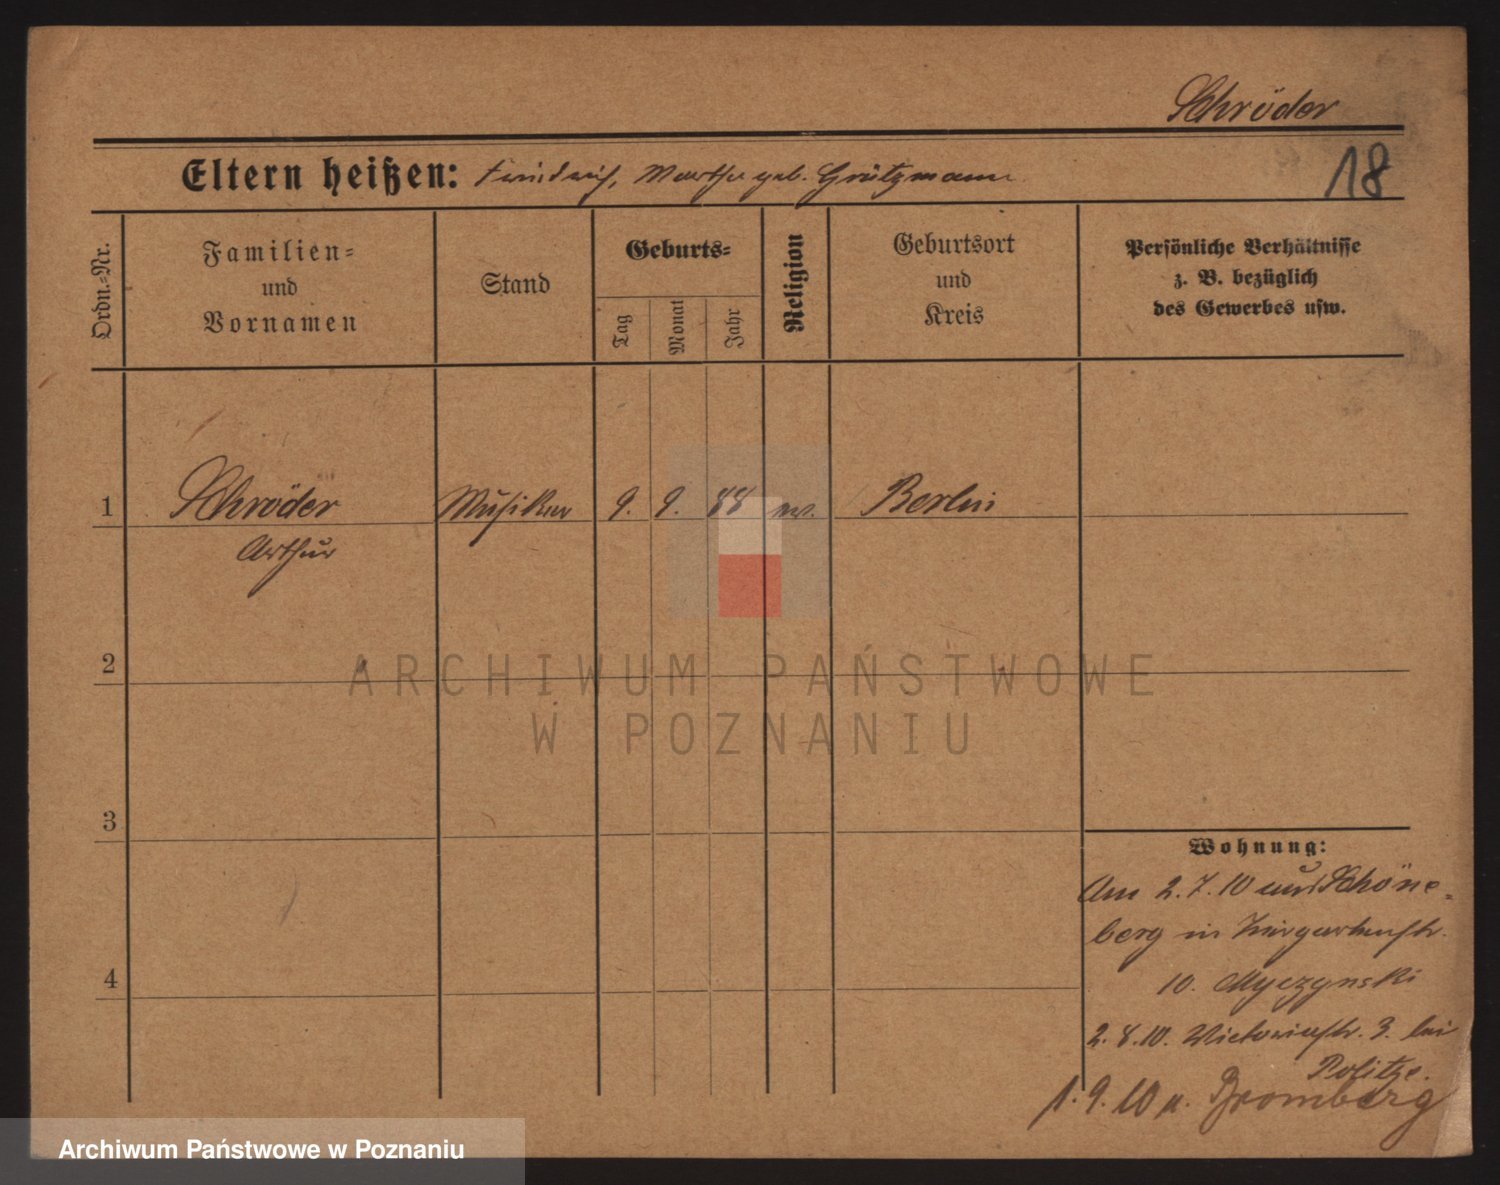 Schröder
18
Eltern heißen: Friedrich, Martha geb. Grützmann
Ordn.-Nr.
Familien-
und
Vornamen
Stand
Geburts-
Tag
Monat
Jahr
Religion
Geburtsort
und
Kreis
Persönliche Verhältnisse
z. B. bezüglich
des Gewerbes usw.
1 Schröder Musiker 9. 9. 88 ev. Berlin
Arthur
2
3
4
Wohnung:
Am 2.7.10 aus Schöne-
berg in Tiergartenstr.
10. Myczynski
2.8.10. Victoriastr. 3. bei
Politze.
1.9.10 n. Bromberg
ARCHIWUM PAŃSTWOWE
W POZNANIU
Archiwum Państwowe w Poznaniu